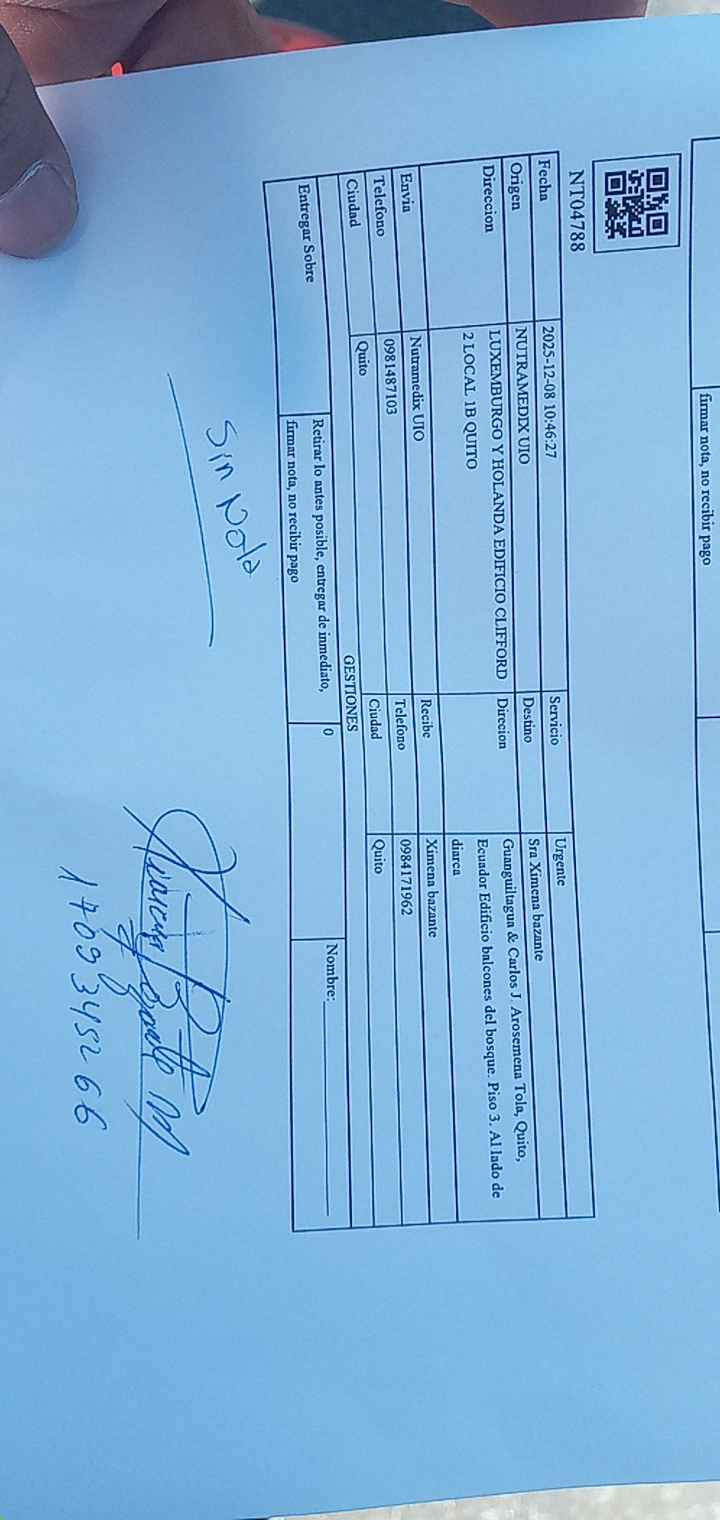 firmar nota, no recibir pago
NT04788
Fecha 2025-12-08 10:46:27 Servicio Urgente
Origen NUTRAMEDIX UIO Destino Sra Ximena bazante
Direccion LUXEMBURGO Y HOLANDA EDIFICIO CLIFFORD Direcion Guanguiltagua & Carlos J. Arosemena Tola, Quito,
2 LOCAL 1B QUITO Ecuador Edificio balcones del bosque. Piso 3. Al lado de
diarca
Envia Nutramedix UIO Recibe Ximena bazante
Telefono 0981487103 Telefono 0984171962
Ciudad Quito Ciudad Quito
GESTIONES
Entregar Sobre Retirar lo antes posible, entregar de inmediato, 0 Nombre:
firmar nota, no recibir pago
Sin Nota
Ximena Bazante
1709345266